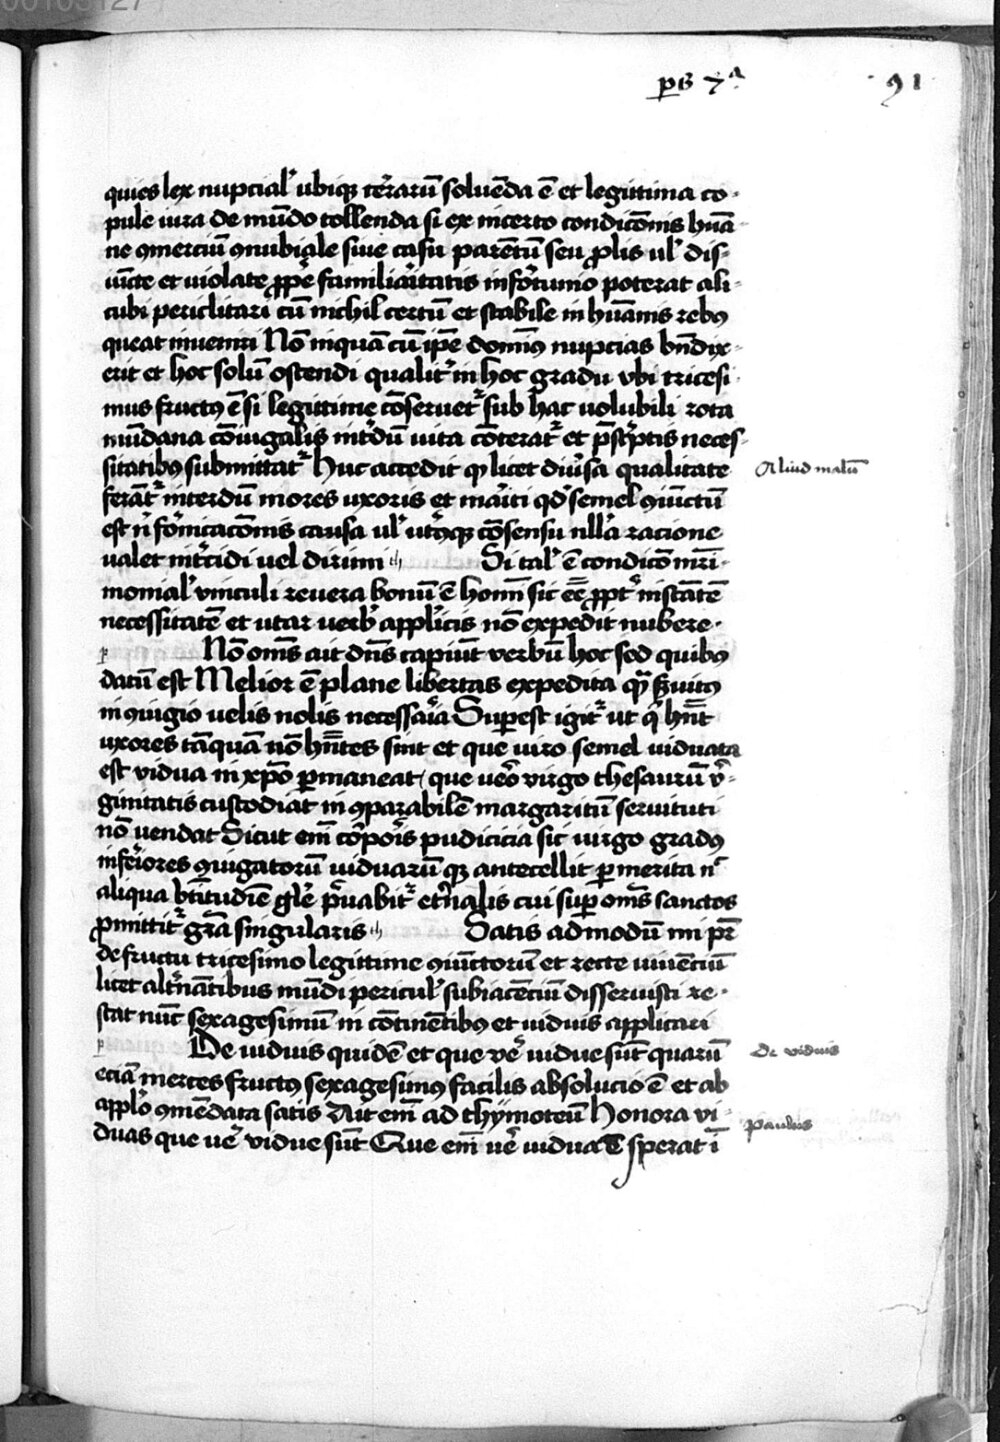 00103127
ps 7ᵃ
91
quies lex nupcial' ubiq; te͂rarū soluēda ē et legittima co-
pule iura de mūdo tollenda si ex incerto condicōnis huā-
ne ꝯmerciū ꝯnubiale siue casu parētū seu ꝓlis ul' dis-
iūcte et uiolate ꝓpē familiaritatis infortunio poterat ali-
cubi periclitari cū nichil certū et stabile in huānis rebꝰ
queat inueniri Nō inquā cū ip̄e domīꝰ nupcias bn̄dix-
erit et hoc solū ostendi qualitᷣ in hoc gradu vbi tricesi-
mus fructꝰ ē si legittime cōseruetᷣ sub hac uolubili rota
mūdana cōiugalis int'dū uita cōteratᷣ et p̄sc'ptis neces-
sitatibꝰ submittatᷣ Huc accedit ꝙ licet diu'sa qualitate
Aliud malū
ferātᷣ interdū mores uxoris et mariti qd' semel ꝯiūctū
est n̄ fornicacōnis causa ul' ut'usq; cōsensu nlla racione
ualet int'cidi uel dirimi Si tal' ē condicō mr̄i-
monial' vinculi reuera bonū ē homī sic ēē ꝓpt' instātē
necessitatē et utar uerb' appl'icis nō expedit nubere.
Nō oms̄ ait dn̄s capiūt verbū hoc sed quibꝰ
datū est Melior ē plane libertas expedita qᷓ suitꝰ
in ꝯiugio uelis nolis necessaria Superest igitᷣ ut q' hn̄t
uxores tāquā nō hn̄tes sint et que uiro semel uiduata
est vidua in xp̄o ꝑmaneat que uero virgo thesaurū v'-
ginitatis custodiat inꝯparabilē margaritū seruituti
nō vendat Sicut em̄ corporis pudicicia sic uirgo gradꝰ
inferiores ꝯiugatorū uiduarūq; antecellit ꝑ merita n'
aliqua bt̄itudiē gl'e p'uabitᷣ et'nalis cui sup oms̄ sanctos
ꝓmittitᷣ gr̄a singularis Satis admodū mi pr̄
de fructu tricesimo legittime ꝯiūctorū et recte uiuēciū
licet alt'nātibus mūdi pericul' subiacēciū disseruisti re-
stat nūc sexagesimū in cōtinētibꝰ et uiduis applicari
De uiduis quidē et que ve' uidue sūt quarū
De viduis
eciā merces fructꝰ sexagesimꝰ facilis absolucio ē et ab
appl'o ꝯmēdata satis Ait em̄ ad thymoteū Honora vi-
paulus
duas que ue' vidue sūt Que em̄ ue' uidua ē sperat ī